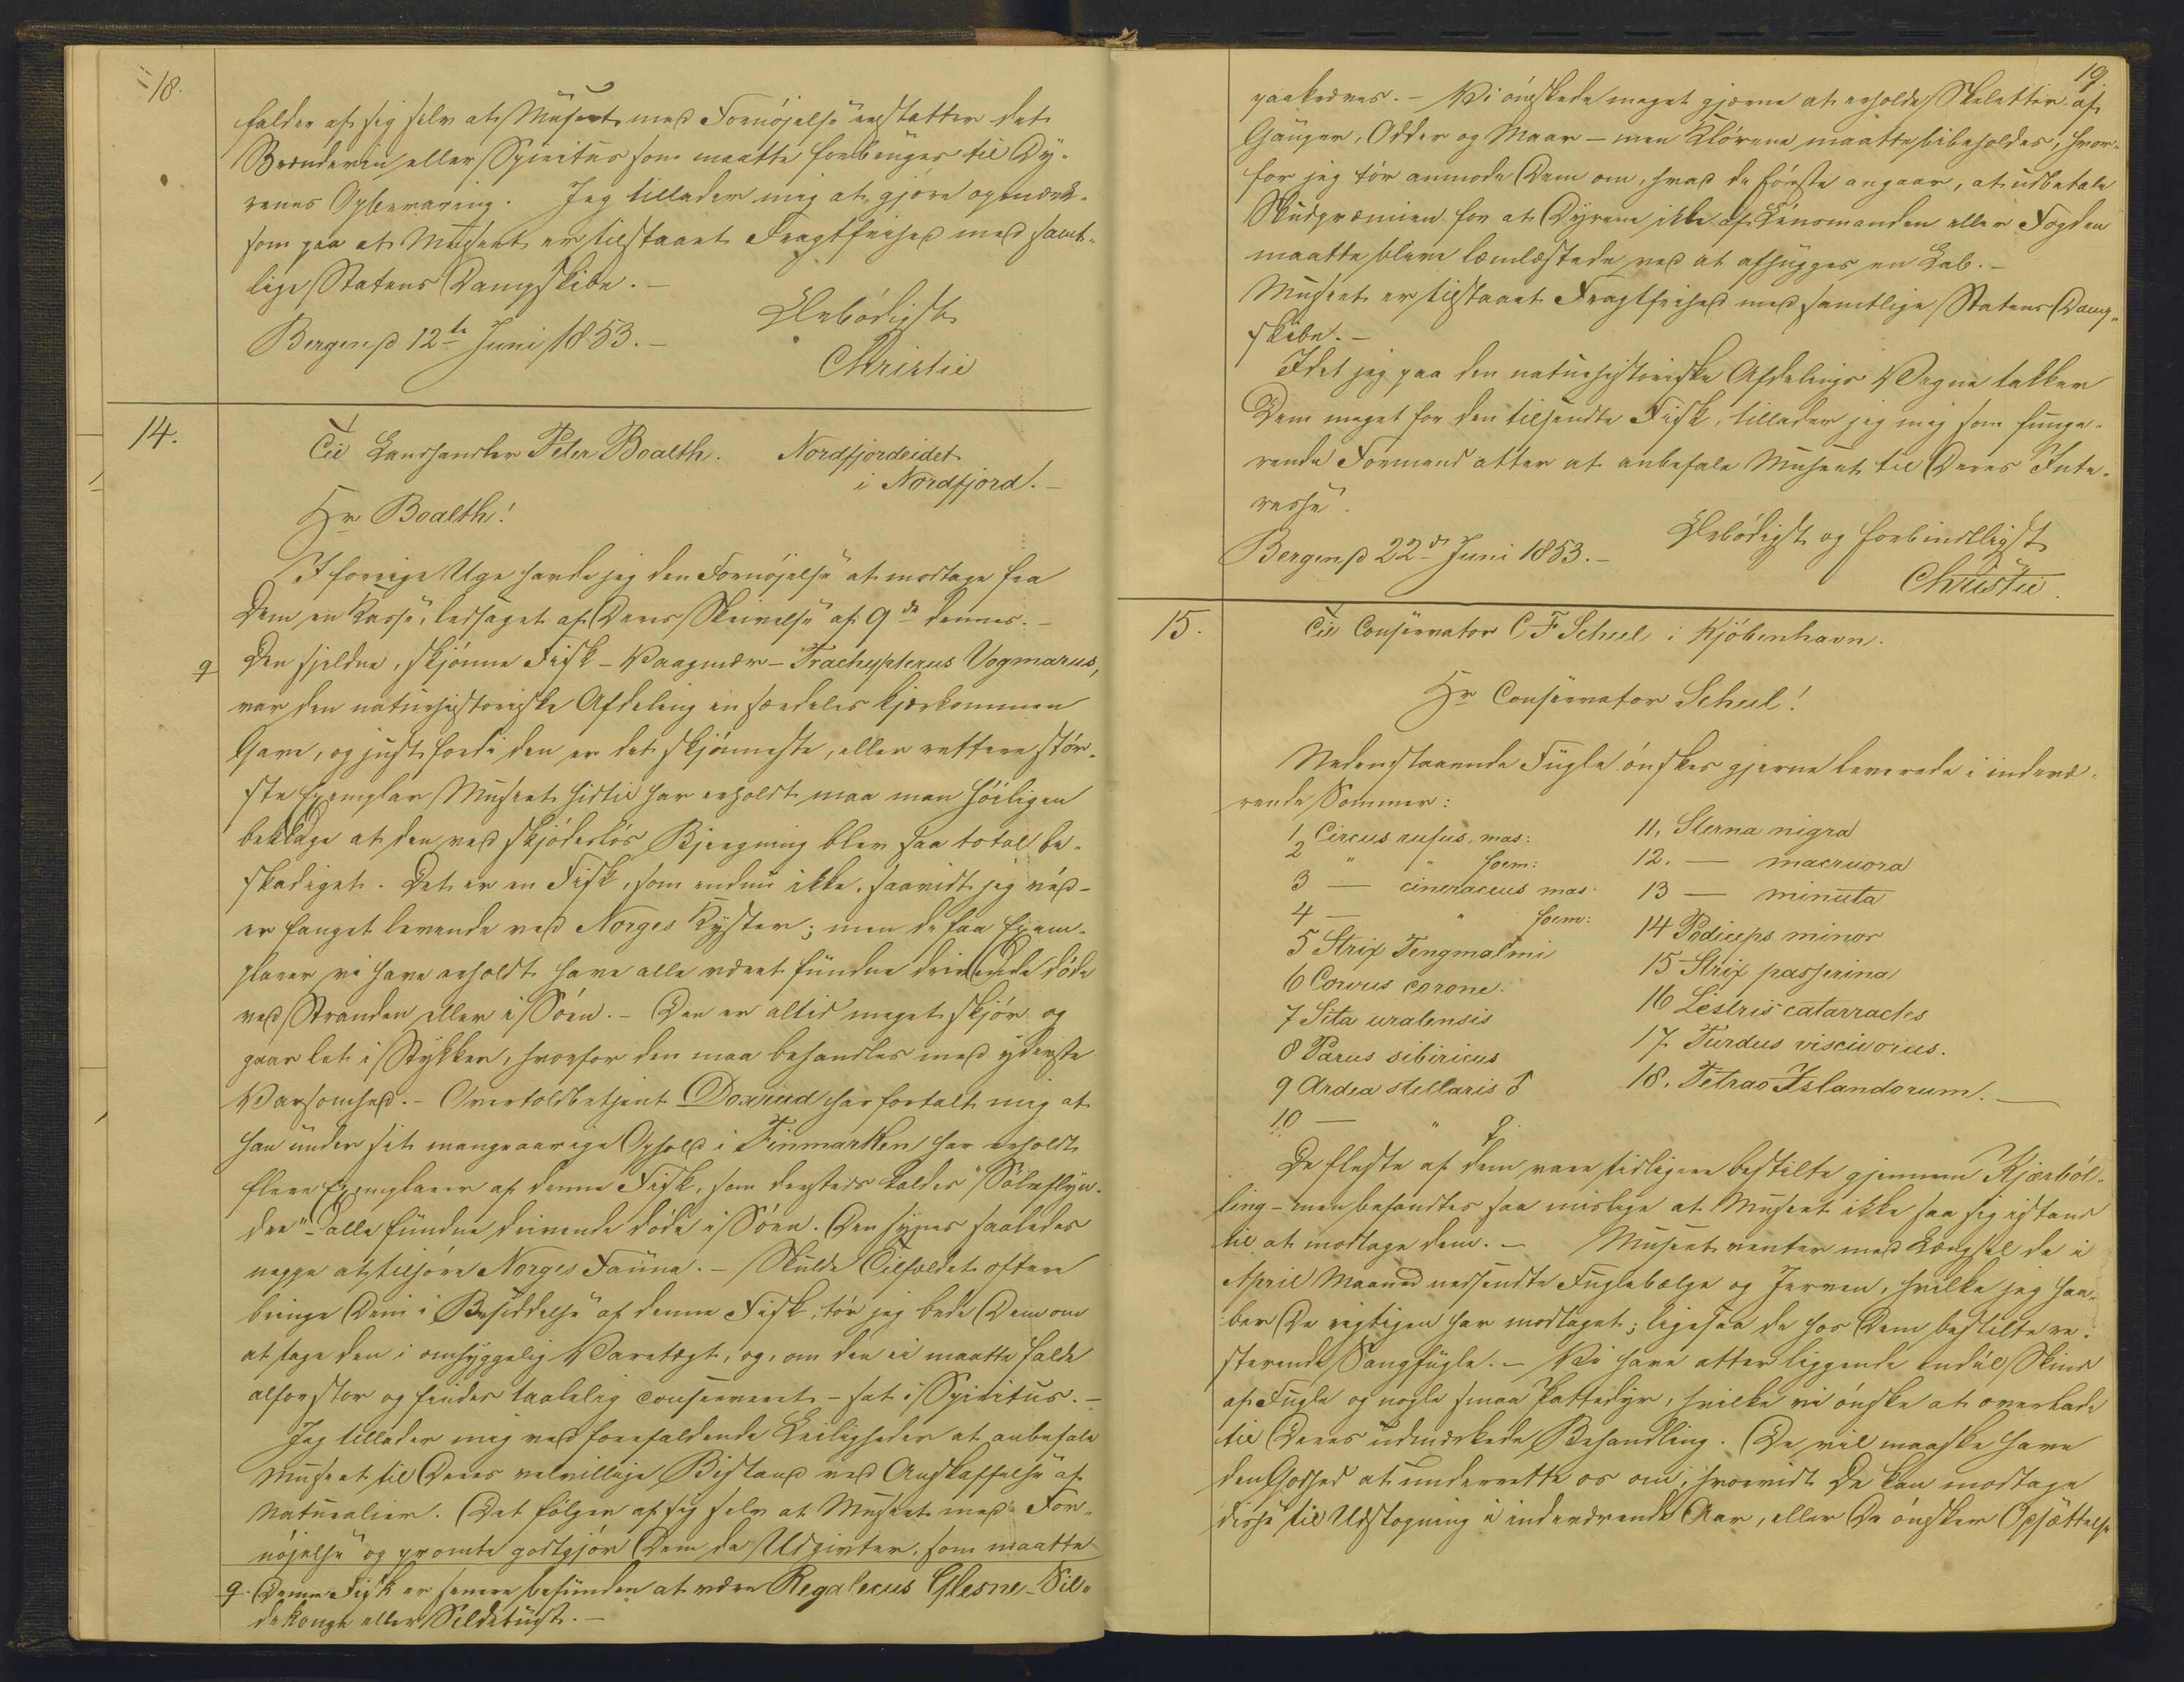 18.
falder af sig selv at Museet med Fornöjelse erstatter det
Brændeviin eller Spiritus som maatte forbruges til Dy-
renes Opbevaring. Jeg tillader mig at gjöre opmærk-
som paa at Museet er tilstaaet Fragtfrihed med samt-
lige Statens Dampskibe. —
Ærbödigst
Bergen, d 12te Juni 1853. —
Christie
14.
Til Landhandler Peter Boalth. Nordfjordeidet
i Nordfjord. —
Hr Boalth!
I forrige Uge havde jeg den Fornöjelse at modtage fra
Dem en Kasse, ledsaget af Deres Skrivelse af 9de dennes. —
Den sjeldne, skjönne Fisk – Vaagmær – Trachypterus Vogmarus,
var den naturhistoriske Afdeling en særdeles kjærkommen
Gave, og just fordi den er det skjönneste, eller rettere stör-
ste Exemplar Museet hidtil har erholdt maa man höiligen
beklage at den ved skjödeslös Bjergning blev saa total be-
skadiget. Det er en Fisk, som endnu ikke, saavidt jeg véd –
er fanget levende ved Norges Kyster; men de faa Exem-
plarer vi have erholdt have alle været fundne drivende döde
ved Stranden eller i Söen. – Den er altid meget skjör og
gaar let i Stykker, hvorfor den maa behandles med yderste
Varsomhed. – Overtoldbetjent Doxrud har fortalt mig at
han under sit mangeaarige Ophold i Finmarken har erholdt
flere Exemplarer af denne Fisk, som dersteds kaldes "Sölvflyn-
dre" – alle fundne drivende döde i Söen. Den synes saaledes
negge at tilhöre Norges Fauna. – Skulde Tilfældet oftere
bringe Dem i Besiddelse af denne Fisk, tör jeg bede Dem om
at tage den i omhyggelig Varetægt, og, om den ei maatte falde
alfor stor og findes taalelig conserveret – sat i Spiritus. —
Jeg tillader mig ved forefaldende Leiligheder at anbefale
Museet til Deres velvillige Bistand ved Anskaffelse af
Naturalier. Det fölger af sig selv at Museet med For-
nöjelse og promte godtgjör Dem de Udgivter, som maatte
Denne Fisk er senere befunden at være Regalecus Glesne – Sil-
dekonge eller Sildetust. —
19.
paakræves. – Vi önskede meget gjerne at erholde Skeletter af
Gauper, Odder og Maar – men Klörene maatte bibeholdes, hvor-
for jeg tör anmode Dem om, hvad de förste angaar, at udbetale
Skudpræmien for at Dyrene ikke af Lensmanden eller Fogden
maatte blive lemlæstede ved at afhugges en Lab. –
Museet er tilstaaet Fragtfrihed med samtlige Statens Damp-
skibe. —
Idet jeg paa den naturhistoriske Afdelings Vegne takker
Dem meget for den tilsendte Fisk, tillader jeg mig som funge-
rende Formand atter at anbefale Museet til Deres Inte-
resse.
Ærbödigst og forbindtligst
Bergen, d 22de Juni 1853. —
Christie.
15.
Til Conservator C F Scheel i Kjöbenhavn.
Hr Conservator Scheel!
Nedenstaaende Fugle önskes gjerne leverede i indevæ-
rende Sommer:
1, Circus rufus, mas:
2 " " foem:
3 — cineraceus mas.
4 — " foem:
5 Strix Tengmalmi
6 Corvus corone.
7 Sita uralensis
8 Parus sibiricus
9 Ardea stellaris ♂
10 — " ♀.
11, Sterna nigra
12. — macruora
13 — minuta
14 Podiceps minor
15 Strix passerina
16 Lestris catarractes
17. Turdus viscivorus.
18. Tetrao Islandorum. —
De fleste af dem vare tidligere bestilte gjennem Kjærböl-
ling – men befandtes saa mislige at Museet ikke saa sig istand
til at modtage dem. — Museet venter med Længsel de i
April Maaned nedsendte Fuglebælge og Jerven, hvilke jeg haa-
ber De rigtigen har modtaget; ligesaa de hos Dem bestilte re-
sterende Sangfugle. – Vi have atter liggende endeel Skind
af Fugle og nogle smaa Pattedyr, hvilke vi önske at overlade
til Deres udmærkede Behandling. De vil maaske have
den Godhed at underrette os om, hvorvidt De kan modtage
disse til Udstopning i indeværende Aar, eller De önsker Opsættelse